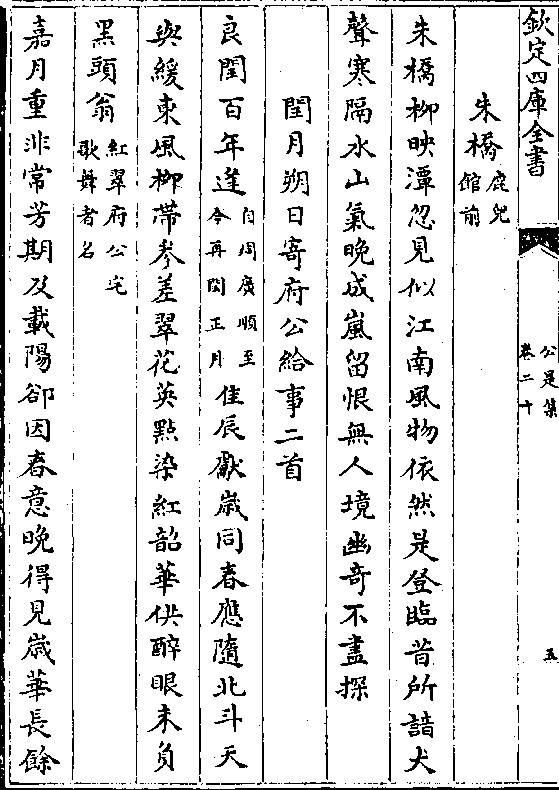 欽定四庫全書
公是集
卷二十
五
朱橋鹿兒館前
朱橋柳映潭忽見似江南風物依然是登臨昔所諳犬
聲寒隔水山氣晚成嵐留恨無人境幽奇不盡探
閏月朔日寄府公給事二首
良閏百年逢自周廣順至今再閏正月佳辰獻歳同春應隨北斗天
與緩東風柳帶參差翠花英㸃染紅韶華供醉眼未負
黑頭翁紅翠府公宅歌舞者名
嘉月重非常芳期及載陽郤因春意晚得見歳華長餘